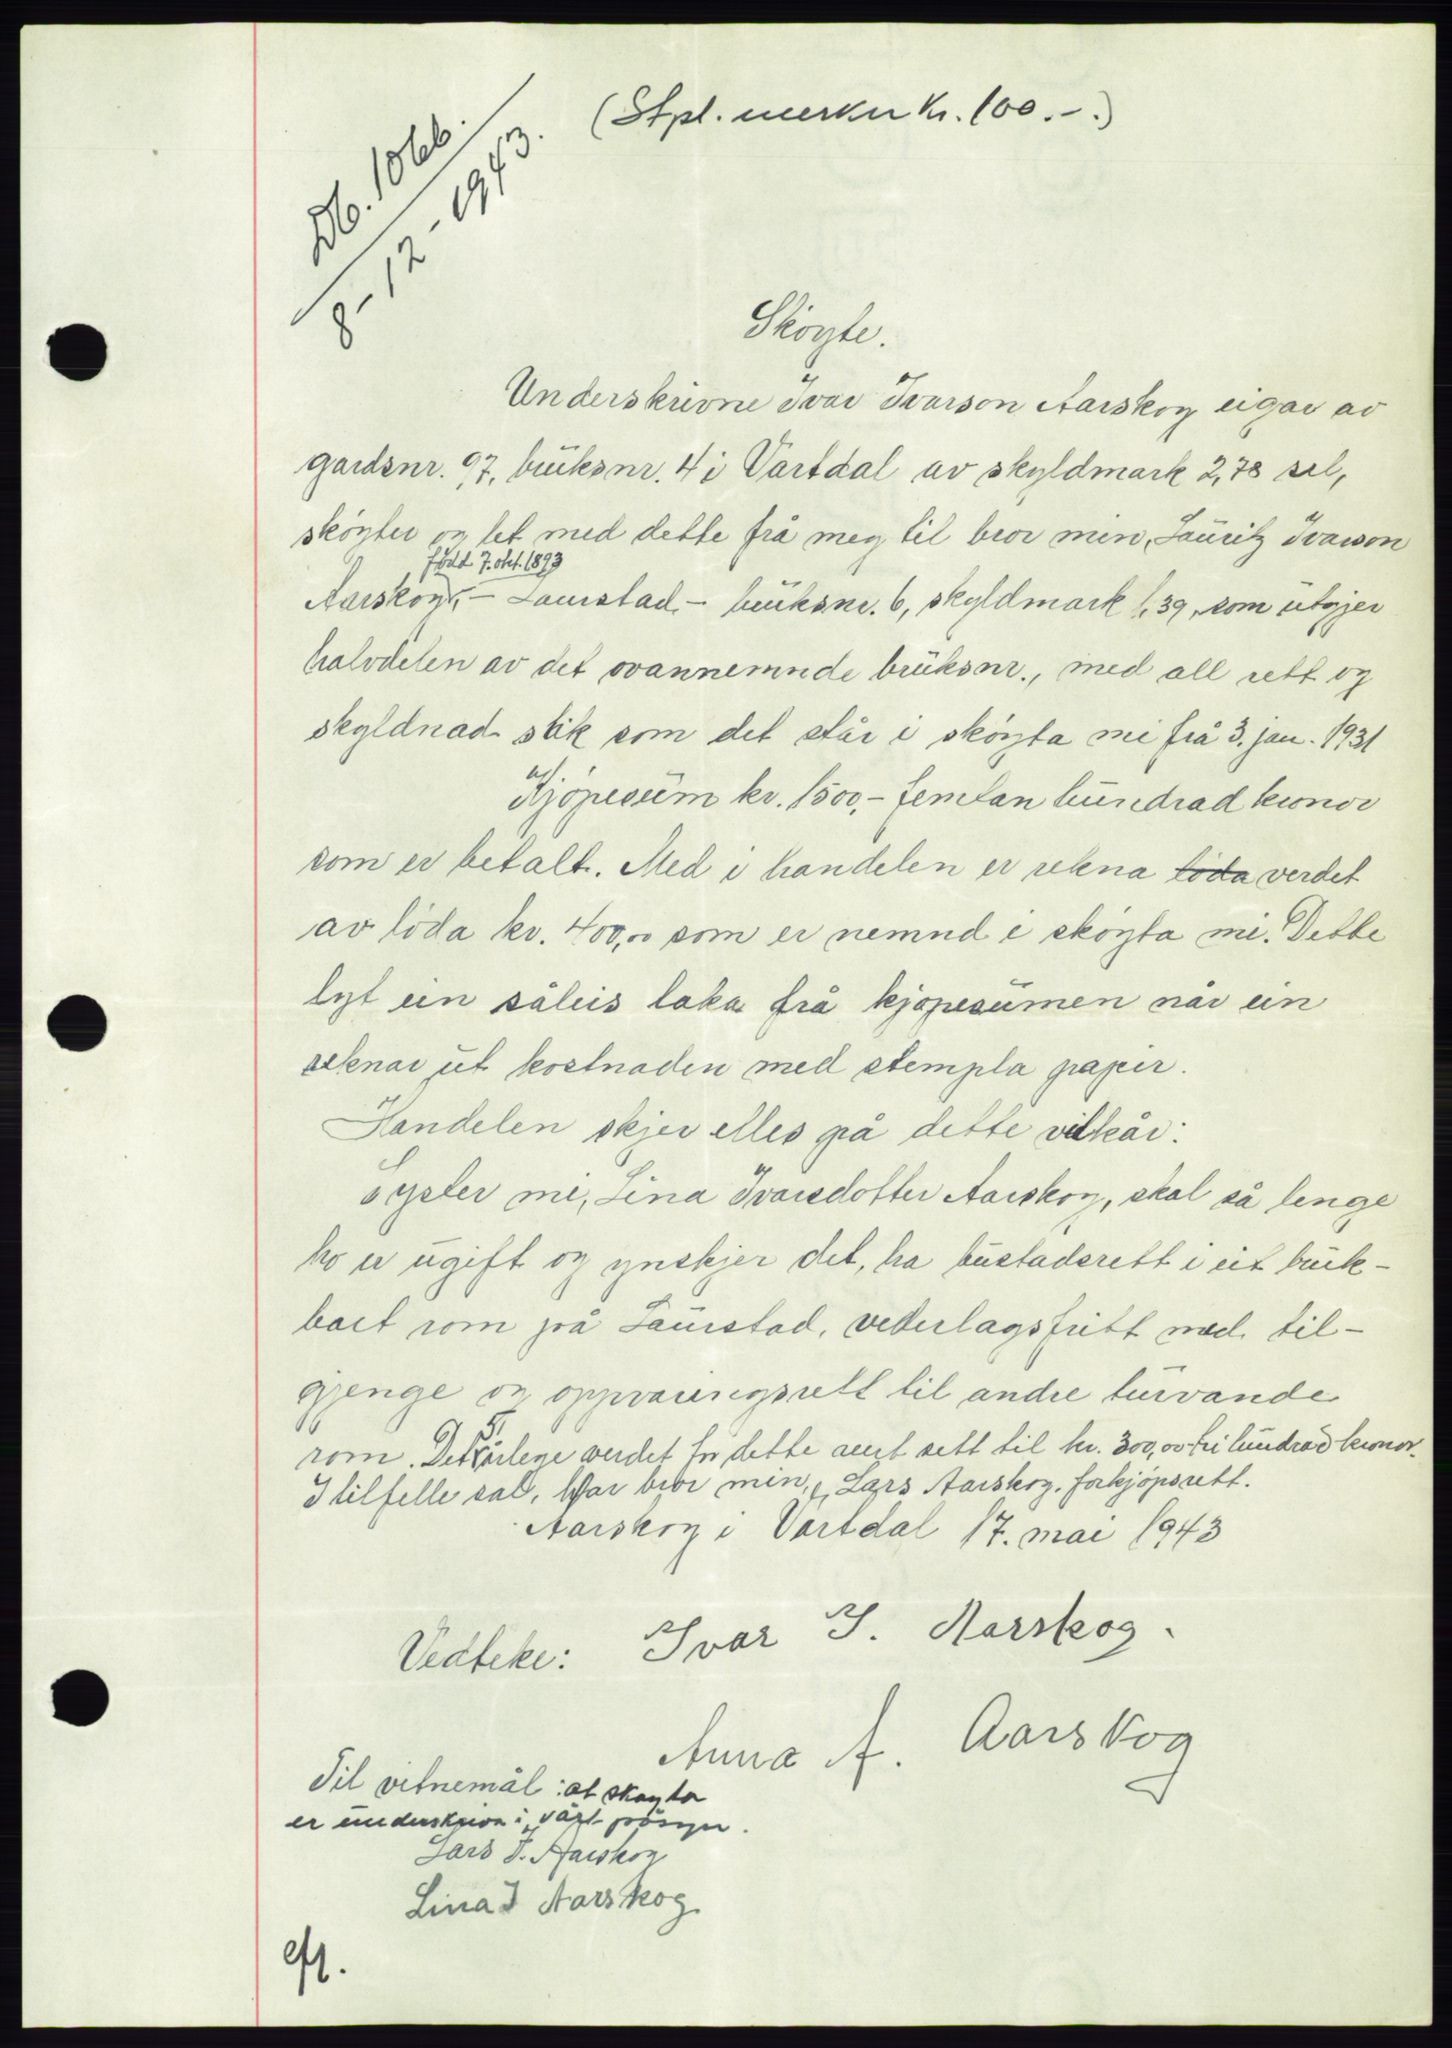 Db. 1066.
8-12-1943.
(Stpl. merker kr. 100.-.)
Sköyte.
Underskrivne Ivar Ivarson Aarskog eigar av
gardsnr. 97, bruksnr. 4 i Vartdal av skyldmark 2,78 sel,
sköyter og let med dette frå meg til bror min, Lauritz Ivarson
född 7. okt. 1893
Aarskog, - Laurstad - bruksnr. 6, skyldmark 1,39, som utgjer
halvdelen av det ovannemnde bruksnr., med all rett og
skyldnad slik som det står i sköyta mi frå 3. jan. 1931
Kjöpesum kr. 1500,- femtan hundrad kronor
som er betalt. Med i handelen er rekna löda verdet
av löda kr. 400,00 som er nemnd i sköyta mi. Dette
lyt ein såleis taka frå kjöpesumen når ein
reknar ut kostnaden med stempla papir.
Handelen skjer elles på dette vilkår:
Syster mi, Lina Ivarsdotter Aarskog, skal så lenge
ho er ugift og ynskjer det, ha bustadsrett i eit bruk-
bart rom på Laurstad, vederlagsfritt med til-
gjenge og oppvaringsrett til andre turvande
rom. Det 5 årlege verdet for dette vert sett til kr. 300,00 tri hundrad kronor.
I tilfelle sal, har bror min, Lars Aarskog, forkjöpsrett.
Aarskog i Vartdal 17. mai 1943
Vedteke: Ivar I. Aarskog.
Anna A. Aarskog
Til vitnemål: at skøyta
er underskriven i vårt påsyn.
Lars I. Aarskog
Lina I Aarskog